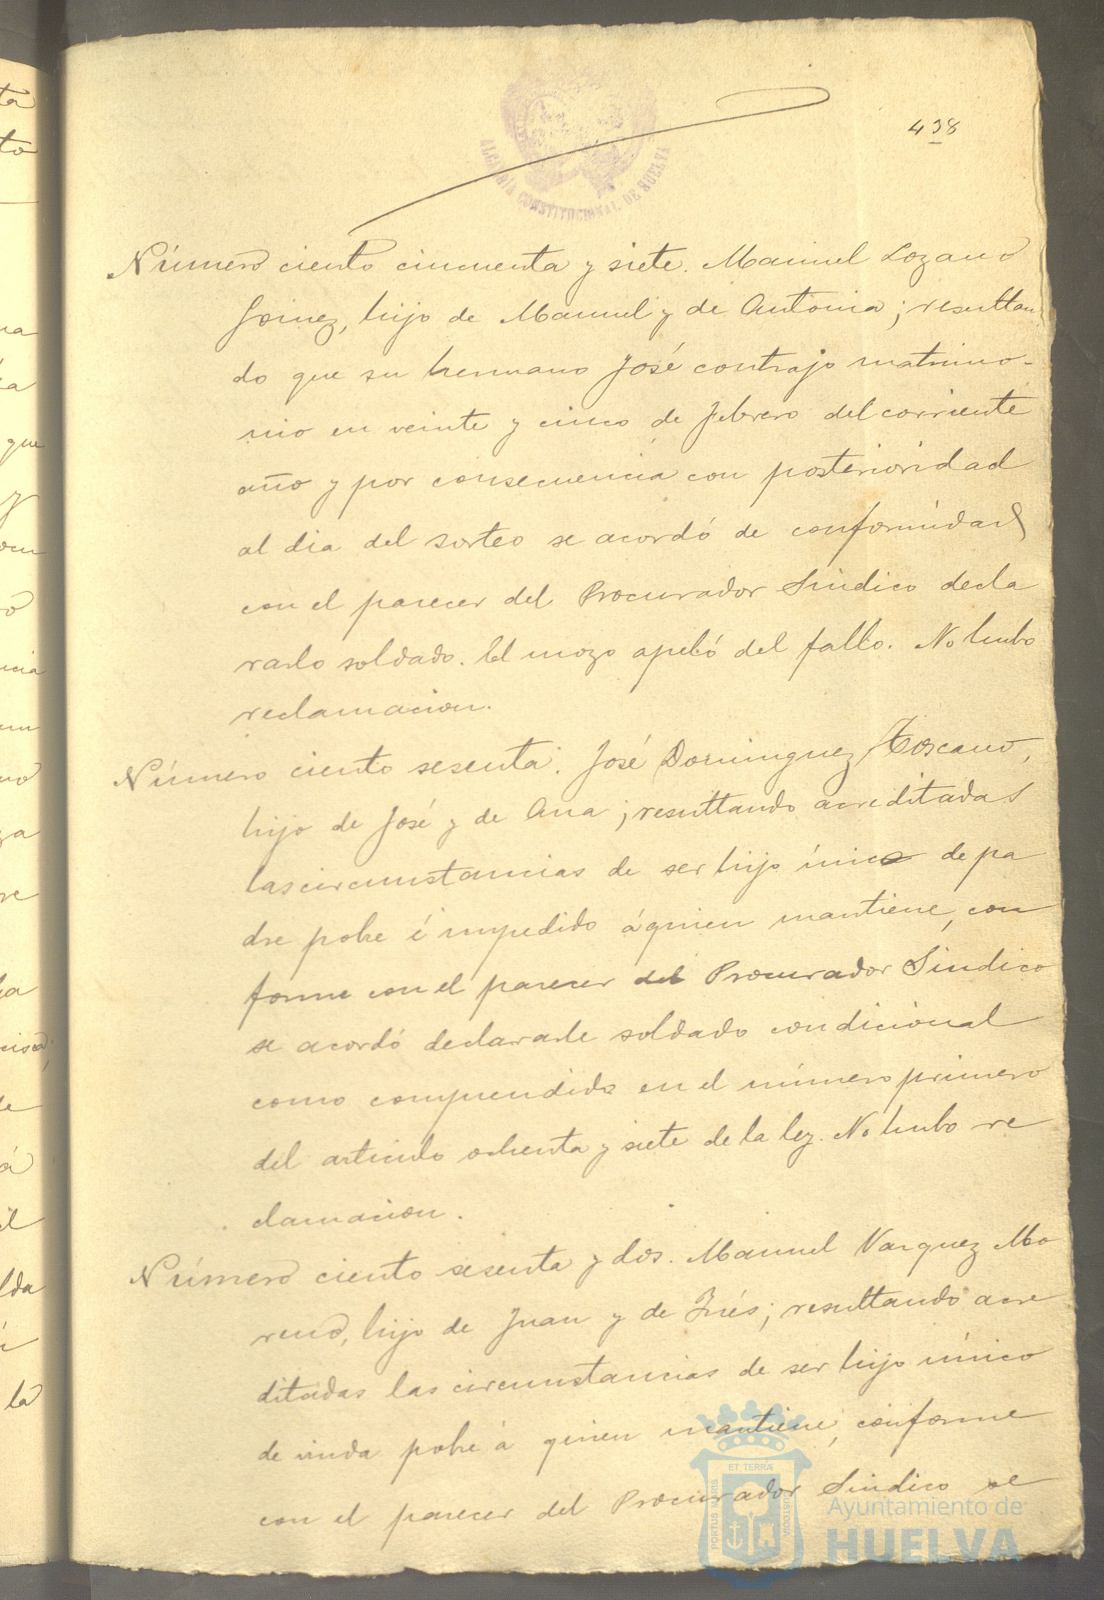 438
ALCALDÍA CONSTITUCIONAL DE HUELVA
Número ciento cincuenta y siete. Manuel Lozano
Gomez, hijo de Manuel y de Antonia; resultan-
do que su hermano José contrajo matrimo-
nio en veinte y cinco de Febrero del corriente
año y por consecuencia con posterioridad
al dia del sorteo se acordó de conformidad
con el parecer del Procurador Sindico decla
rarlo soldado. El mozo apeló del fallo. No hubo
reclamacion.
Número ciento sesenta. José Dominguez Toscano,
hijo de José y de Ana; resultando acreditadas
las circunstancias de ser hijo único de pa
dre pobre é impedido á quien mantiene, con
forme con el parecer del Procurador Sindico
se acordó declararle soldado condicional
como comprendido en el número primero
del articulo ochenta y siete de la ley. No hubo re
clamacion.
Número ciento sesenta y dos. Manuel Vazquez Mo
reno, hijo de Juan y de Inés; resultando acre
ditadas las circunstancias de ser hijo único
de viuda pobre á quien mantiene, conforme
con el parecer del Procurador Sindico se
PORTUS MARIS
ET TERRÆ
CUSTODIA
Ayuntamiento de
HUELVA